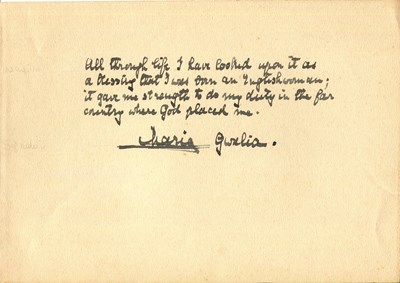 All through life I have looked upon it as
a blessing that I was born an Englishwoman;
it gave me strength to do my duty in the far
country where God placed me.
Maria Gwalia.